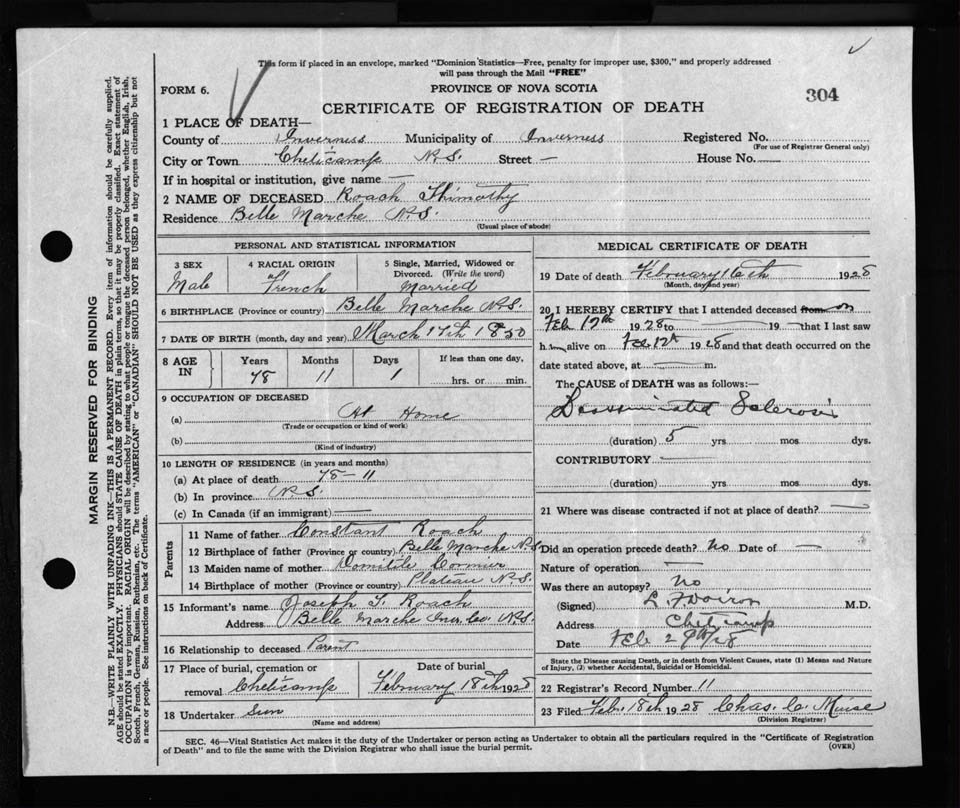 This form if placed in an envelope, marked "Dominion Statistics—Free, penalty for improper use, $300," and properly addressed
will pass through the Mail "FREE"
FORM 6.
PROVINCE OF NOVA SCOTIA
304
CERTIFICATE OF REGISTRATION OF DEATH
1 PLACE OF DEATH—
County of Inverness Municipality of Inverness Registered No.
(For use of Registrar General only)
City or Town Cheticamp N.S. Street — House No.
If in hospital or institution, give name —
2 NAME OF DECEASED Roach Thimothy
Residence Belle Marche N.S.
(Usual place of abode)
PERSONAL AND STATISTICAL INFORMATION
3 SEX Male
4 RACIAL ORIGIN French
5 Single, Married, Widowed or Divorced. (Write the word) Married
6 BIRTHPLACE (Province or country) Belle Marche N.S.
7 DATE OF BIRTH (month, day and year) March 17th 1850
8 AGE IN Years 78 Months 11 Days 1 If less than one day, hrs. or min.
9 OCCUPATION OF DECEASED
(a) At Home
(Trade or occupation or kind of work)
(b)
(Kind of industry)
10 LENGTH OF RESIDENCE (in years and months)
(a) At place of death 78 – 11
(b) In province N.S.
(c) In Canada (if an immigrant)
Parents
11 Name of father Constant Roach
12 Birthplace of father (Province or country) Belle Marche N.S.
13 Maiden name of mother Domitile Cormier
14 Birthplace of mother (Province or country) Plateau N.S.
15 Informant's name Joseph T. Roach
Address Belle Marche Inv. Co. N.S.
16 Relationship to deceased Parent
17 Place of burial, cremation or removal Cheticamp Date of burial February 18th 1928
18 Undertaker
(Name and address)
MEDICAL CERTIFICATE OF DEATH
19 Date of death February 16th 1928
(Month, day and year)
20 I HEREBY CERTIFY that I attended deceased from on
Feb 12th 1928 to 19 — that I last saw
him alive on Feb 12th 1928 and that death occurred on the
date stated above, at m.
The CAUSE of DEATH was as follows:—
Disseminated Sclerosis
(duration) 5 yrs mos dys.
CONTRIBUTORY
(duration) yrs mos dys.
21 Where was disease contracted if not at place of death?
Did an operation precede death? No Date of —
Nature of operation —
Was there an autopsy? No
(Signed) L. M.D.
Address Cheticamp
Date Feb 29th/28
State the Disease causing Death, or in death from Violent Causes, state (1) Means and Nature
of Injury, (2) whether Accidental, Suicidal or Homicidal.
22 Registrar's Record Number 11
23 Filed Feb. 18th 1928 Chas. C. Muise
(Division Registrar)
SEC. 46—Vital Statistics Act makes it the duty of the Undertaker or person acting as Undertaker to obtain all the particulars required in the "Certificate of Registration
of Death" and to file the same with the Division Registrar who shall issue the burial permit.
(OVER)
MARGIN RESERVED FOR BINDING
N.B.—WRITE PLAINLY WITH UNFADING INK—THIS IS A PERMANENT RECORD. Every item of information should be carefully supplied.
AGE should be stated EXACTLY. PHYSICIANS should STATE CAUSE OF DEATH in plain terms, so that it may be properly classified. Exact statement of
OCCUPATION is very important. RACIAL ORIGIN will be described by stating to what people or tongue the deceased person belonged, whether English, Irish,
Scotch, French, German, Russian, Ruthenian, etc. The terms "AMERICAN" or "CANADIAN" SHOULD NOT BE USED as they express citizenship but not
a race or people. See instructions on back of Certificate.